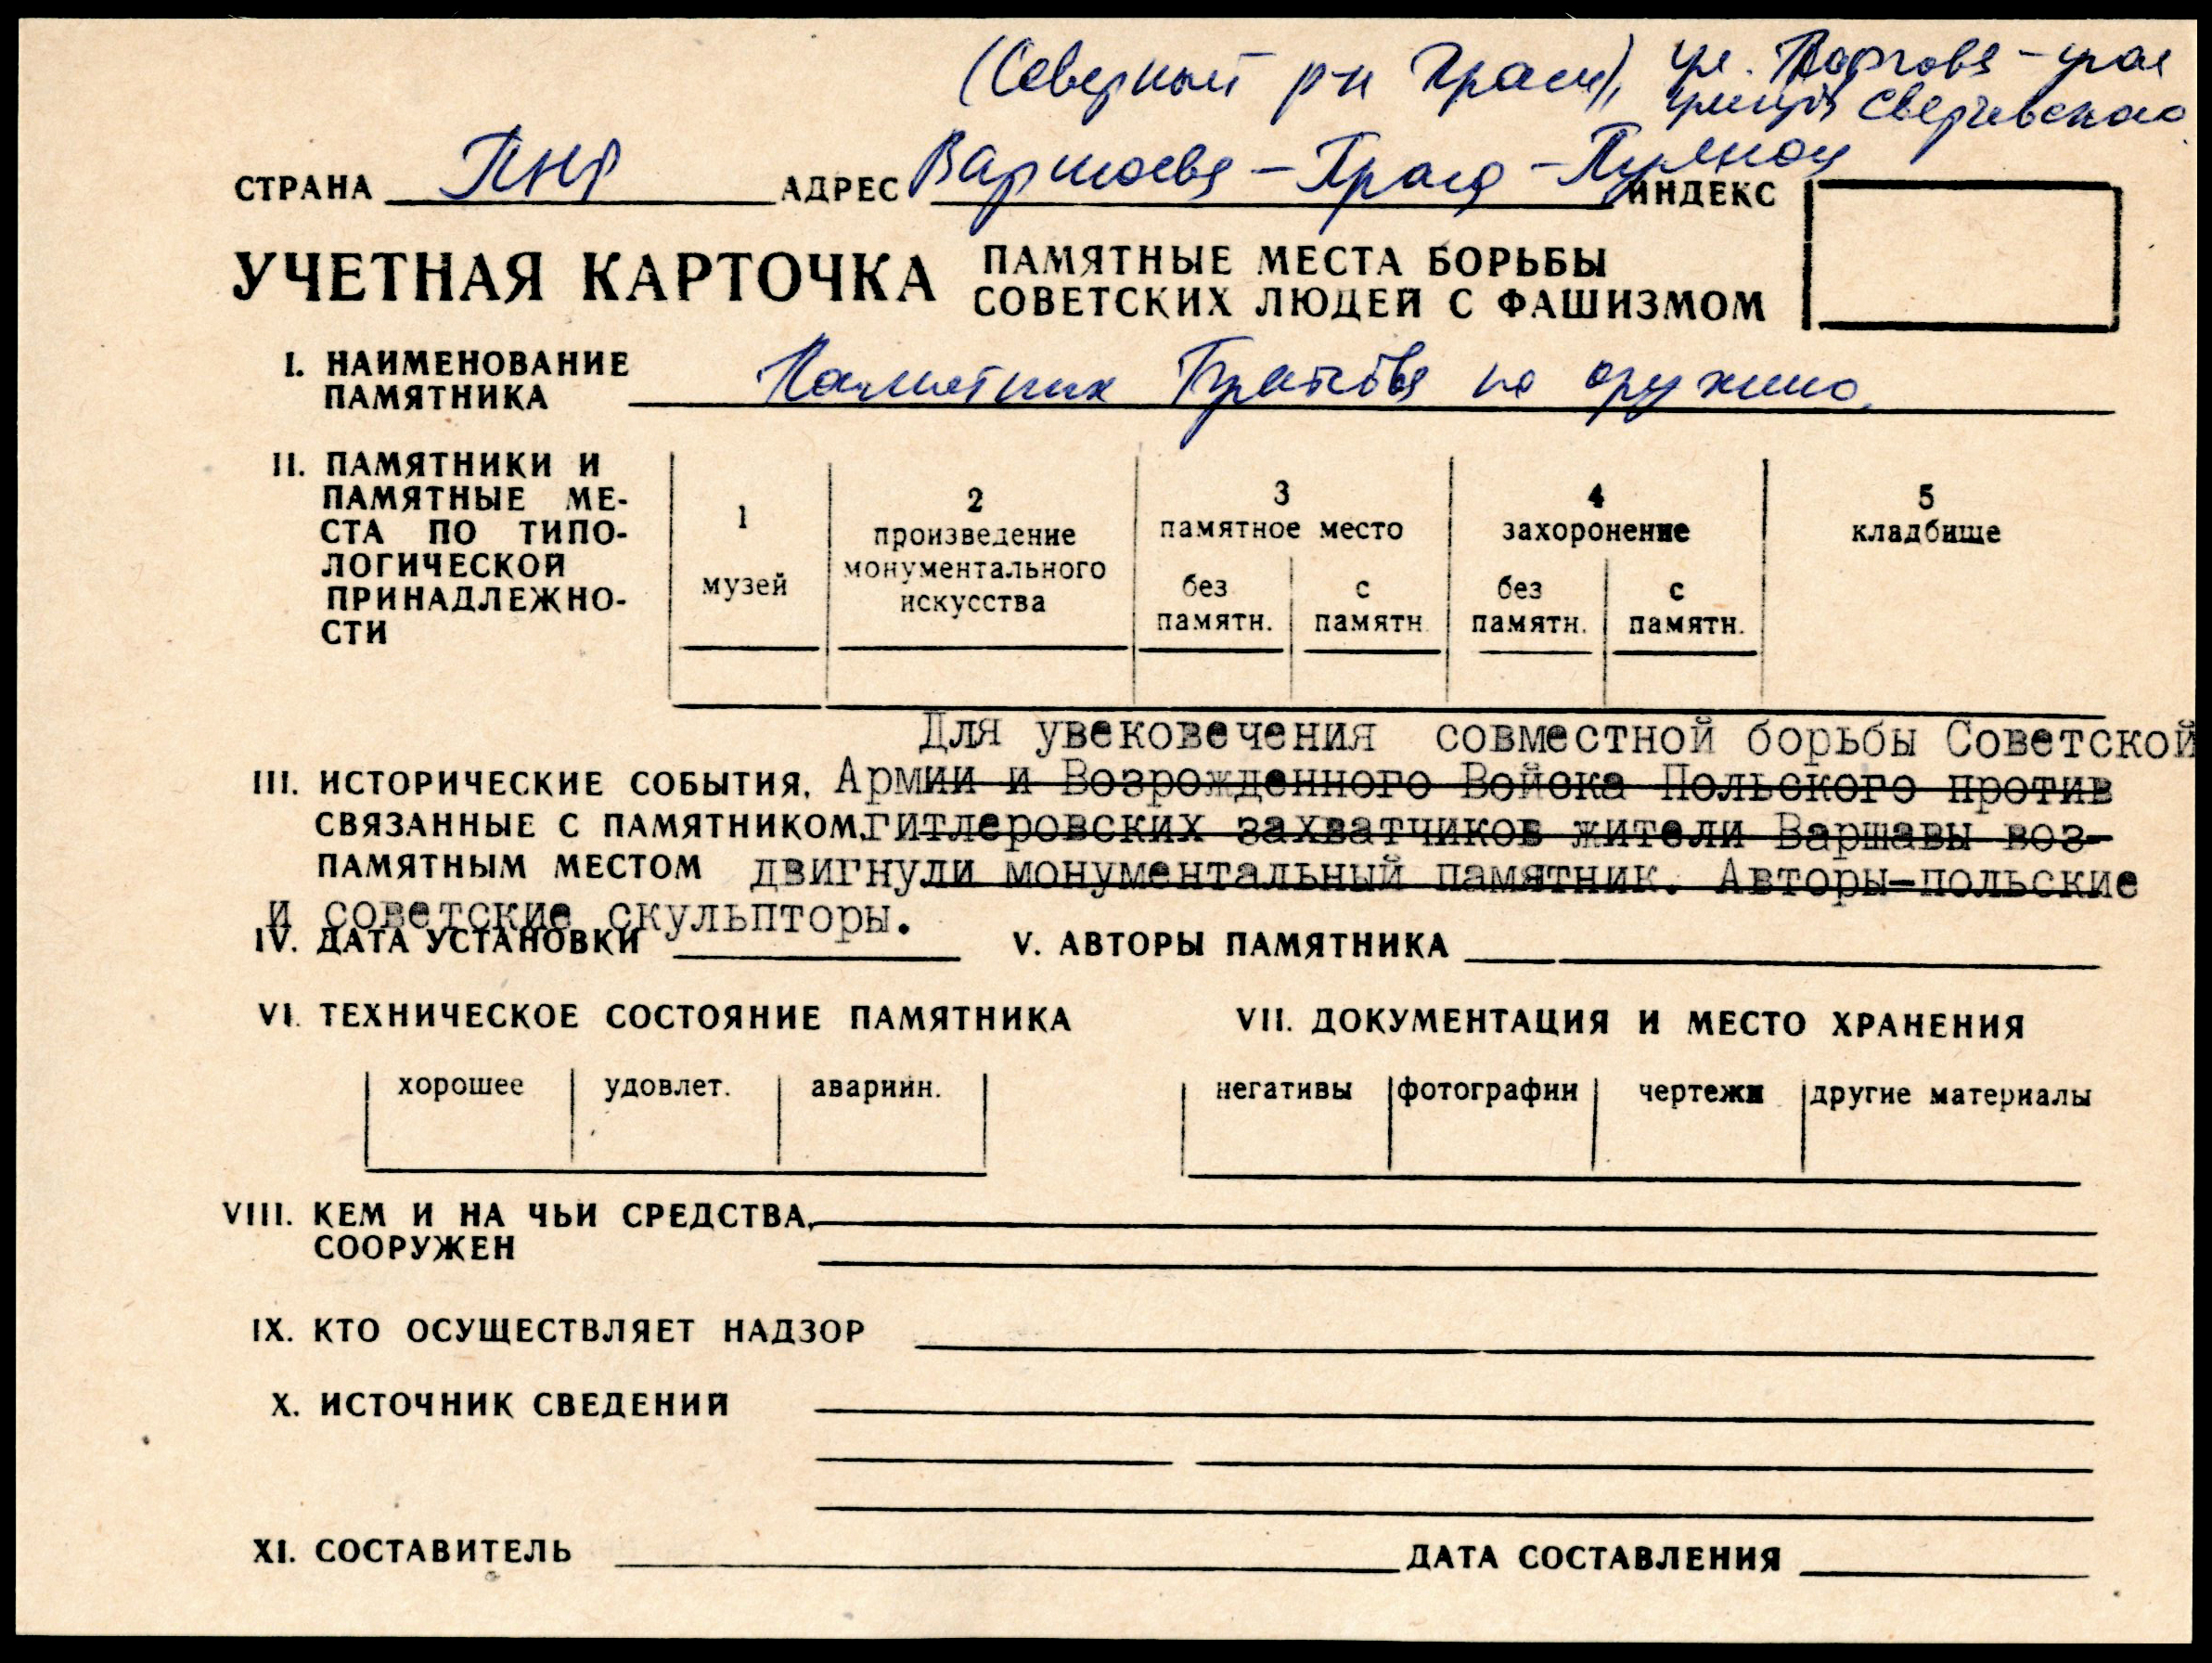 (Северный р-н Праги), ул. Тарговя – угол
улицы Сверчевского
СТРАНА ПНР АДРЕС Варшава – Прага – Пулноц ИНДЕКС
УЧЕТНАЯ КАРТОЧКА ПАМЯТНЫЕ МЕСТА БОРЬБЫ
СОВЕТСКИХ ЛЮДЕЙ С ФАШИЗМОМ
I. НАИМЕНОВАНИЕ
ПАМЯТНИКА Памятник Братства по оружию
II. ПАМЯТНИКИ И
ПАМЯТНЫЕ МЕ-
СТА ПО ТИПО-
ЛОГИЧЕСКОЙ
ПРИНАДЛЕЖНО-
СТИ
1
музей
2
произведение
монументального
искусства
3
памятное место
без
памятн.
с
памятн.
4
захоронение
без
памятн.
с
памятн.
5
кладбище
Для увековечения совместной борьбы Советской
III. ИСТОРИЧЕСКИЕ СОБЫТИЯ, Армии и Возрожденного Войска Польского против
СВЯЗАННЫЕ С ПАМЯТНИКОМ, гитлеровских захватчиков жители Варшавы воз-
ПАМЯТНЫМ МЕСТОМ двигнули монументальный памятник. Авторы-польские
и советские скульпторы.
IV. ДАТА УСТАНОВКИ V. АВТОРЫ ПАМЯТНИКА
VI. ТЕХНИЧЕСКОЕ СОСТОЯНИЕ ПАМЯТНИКА VII. ДОКУМЕНТАЦИЯ И МЕСТО ХРАНЕНИЯ
хорошее удовлет. аварийн. негативы фотографии чертежи другие материалы
VIII. КЕМ И НА ЧЬИ СРЕДСТВА,
СООРУЖЕН
IX. КТО ОСУЩЕСТВЛЯЕТ НАДЗОР
X. ИСТОЧНИК СВЕДЕНИЙ
XI. СОСТАВИТЕЛЬ ДАТА СОСТАВЛЕНИЯ